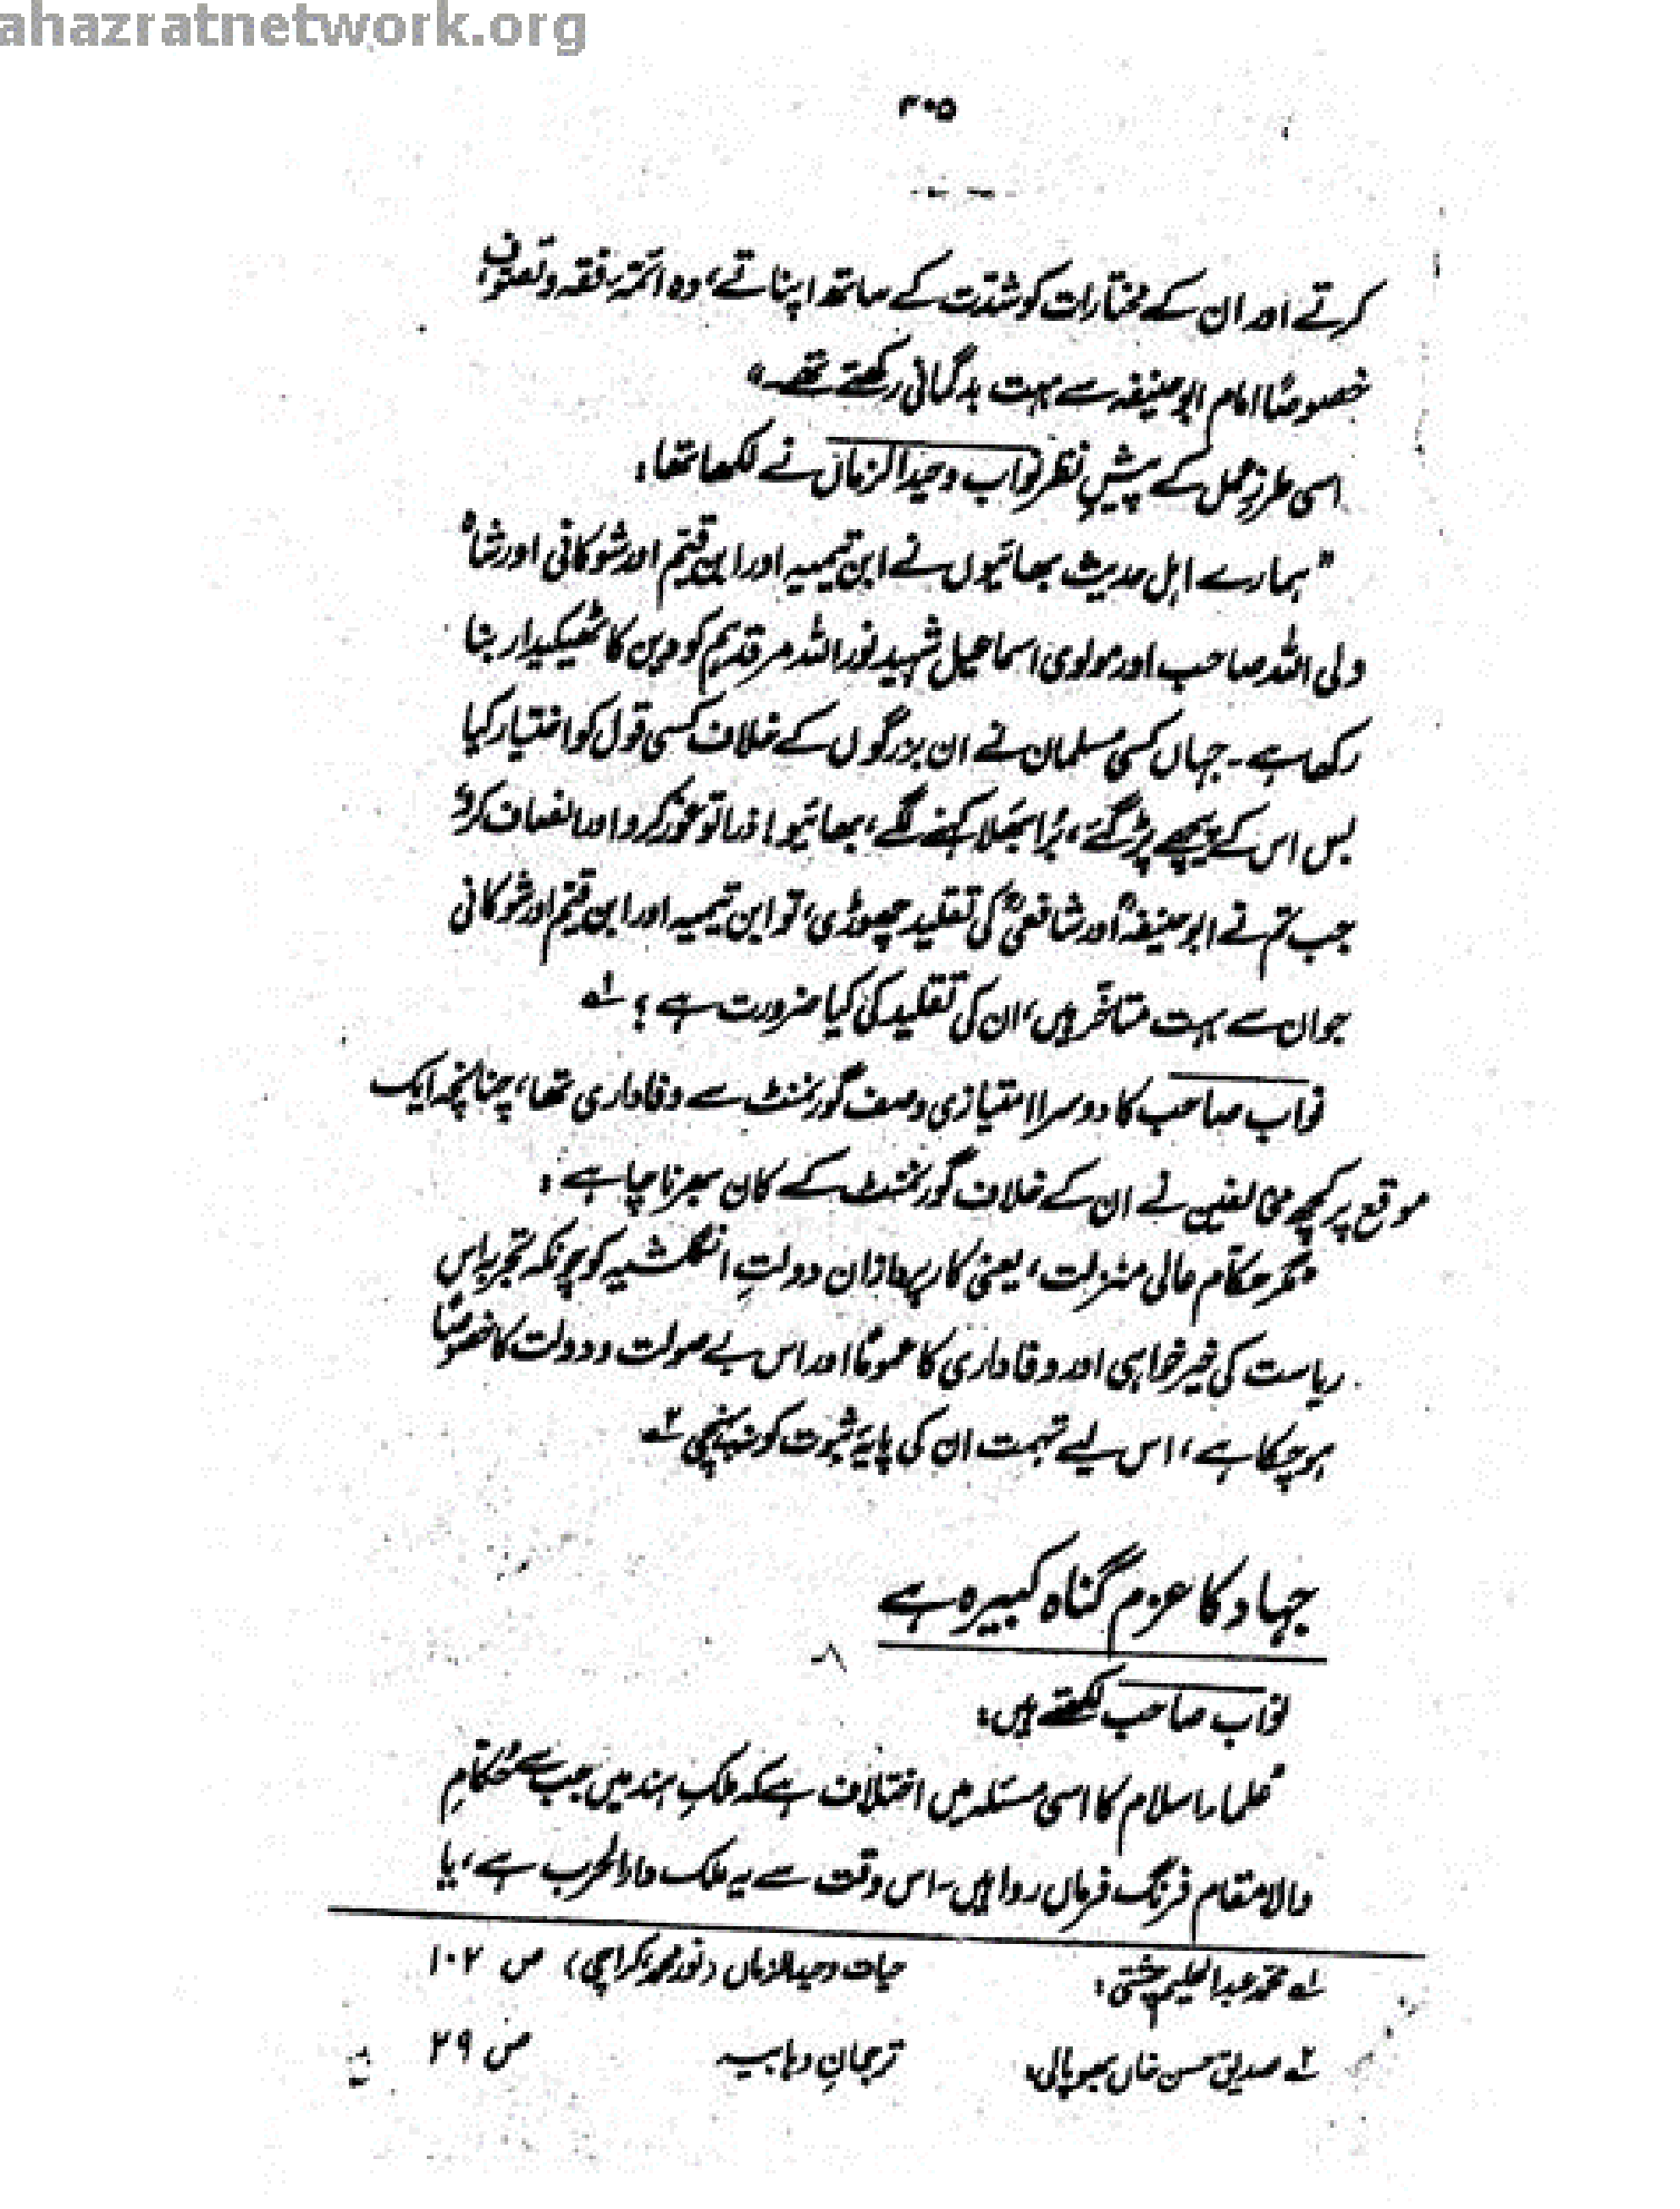 ahazratnetwork.org
۴۰۵
کرتے اور ان کے مختارات کو شدّت کے ساتھ اپناتے، وہ ائمّۂ فقہ و تصوّف،
خصوصًا امام ابوحنیفہ سے بہت بدگمانی رکھتے تھے۔"
اسی طرزِ عمل کے پیشِ نظر نواب وحید الزماں نے لکھا تھا:
"ہمارے اہلِ حدیث بھائیوں نے ابن تیمیہ اور ابن قیّم اور شوکانی اور شاہ
ولی اللہ صاحب اور مولوی اسماعیل شہید نور اللہ مرقدہم کو دین کا ٹھیکیدار بنا
رکھا ہے۔ جہاں کسی مسلمان نے ان بزرگوں کے خلاف کسی قول کو اختیار کیا
بس اس کے پیچھے پڑ گئے، بُرا بھلا کہنے لگے، بھائیو! ذرا تو غور کرو اور انصاف کرو
جب تم نے ابوحنیفہؒ اور شافعیؒ کی تقلید چھوڑی، تو ابن تیمیہ اور ابن قیّم اور شوکانی
جو ان سے بہت متاخّر ہیں، ان کی تقلید کی کیا ضرورت ہے؟ ۱؎
نواب صاحب کا دوسرا امتیازی وصف گورنمنٹ سے وفاداری تھا، چنانچہ ایک
موقع پر کچھ مخالفین نے ان کے خلاف گورنمنٹ کے کان بھرنا چاہے:
مگر حکّام عالی منزلت، یعنی کارپردازان دولتِ انگلشیہ کو چونکہ تجربہ اس
ریاست کی خیرخواہی اور وفاداری کا عمومًا اور اس بے صولت و دولت کا خصوصًا
ہو چکا ہے، اس لیے تہمت ان کی پایۂ ثبوت کو نہ پہنچی ۲؎
جہاد کا عزم گناہ کبیرہ ہے
نواب صاحب لکھتے ہیں:
"علماء اسلام کا اسی مسئلہ میں اختلاف ہے کہ ملکِ ہند میں جب سے حُکّامِ
والا مقام فرنگ فرماں روا ہیں۔ اس وقت سے یہ ملک دارالحرب ہے، یا
۱؎ محمّد عبد الحلیم چشتی: حیات وحید الزماں (نور محمد، کراچی) ص ۱۰۲
۲؎ صدیق حسن خاں بھوپالی، ترجمانِ وہابیہ ص ۲۹